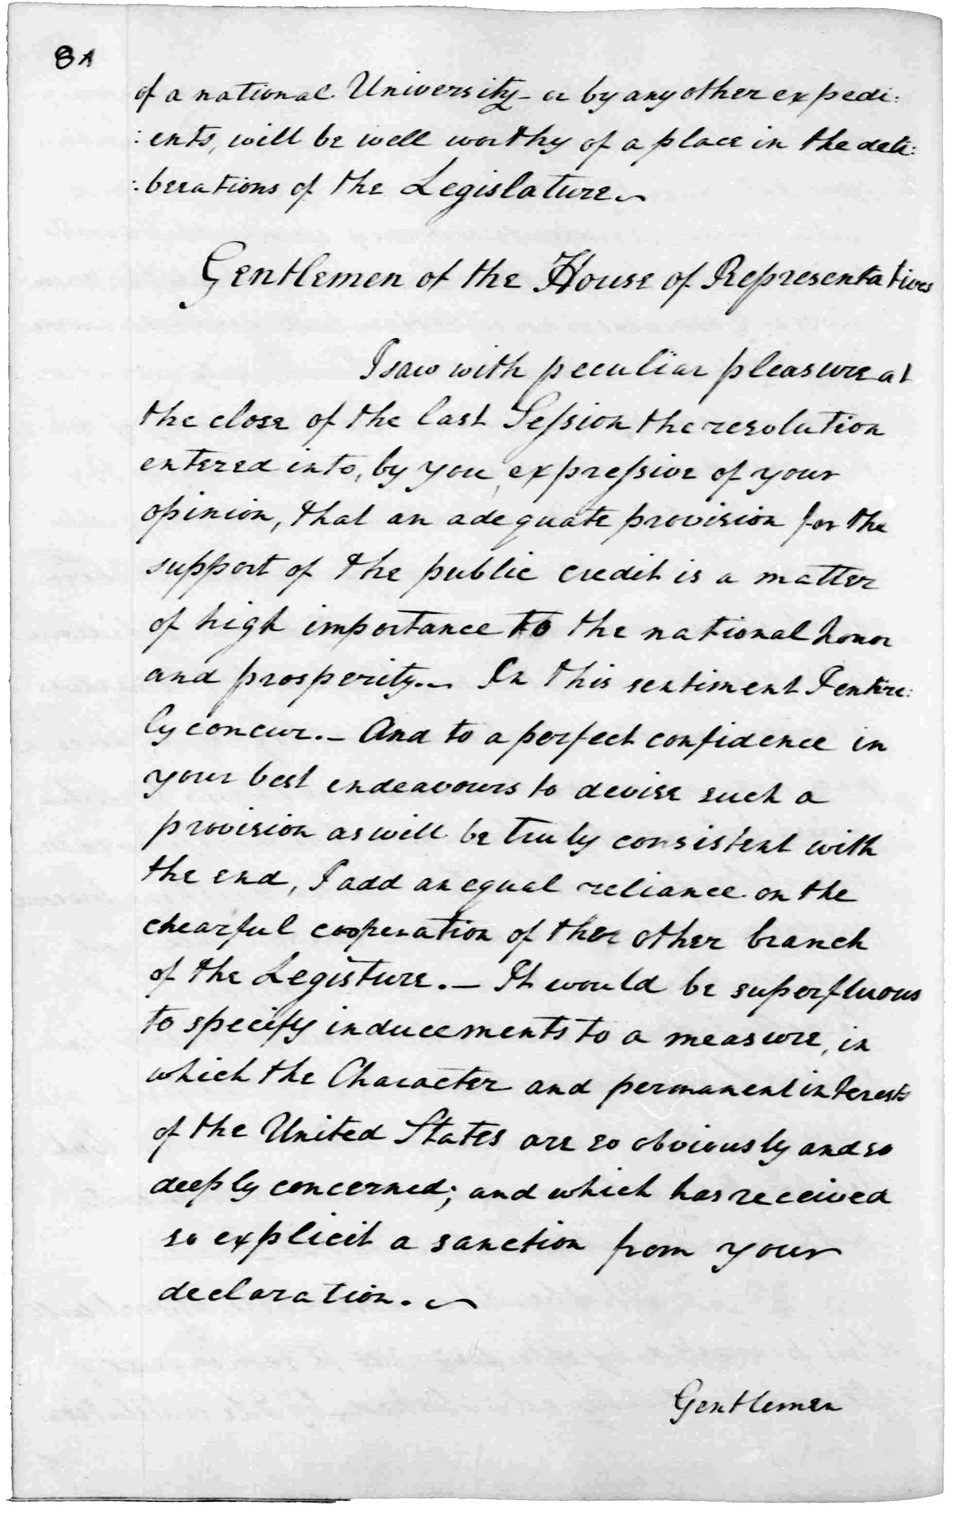 8A
of a national University_ or by any other expedi:
:ents, will be well worthy of a place in the deli:
:berations of the Legislature.
Gentlemen of the House of Representatives
I saw with peculiar pleasure at
the close of the last Session the resolution
entered into, by you, expressive of your
opinion, that an adequate provision for the
support of the public credit is a matter
of high importance to the national honor
and prosperity._ In this sentiment I entire:
ly concur._ And to a perfect confidence in
your best endeavours to devise such a
provision as will be truly consistent with
the end, I add an equal reliance on the
chearful cooperation of the other branch
of the Legisture._ It would be superfluous
to specify inducements to a measure, in
which the Character and permanent interests
of the United States are so obviously and so
deeply concerned; and which has received
so explicit a sanction from your
declaration.
Gentlemen